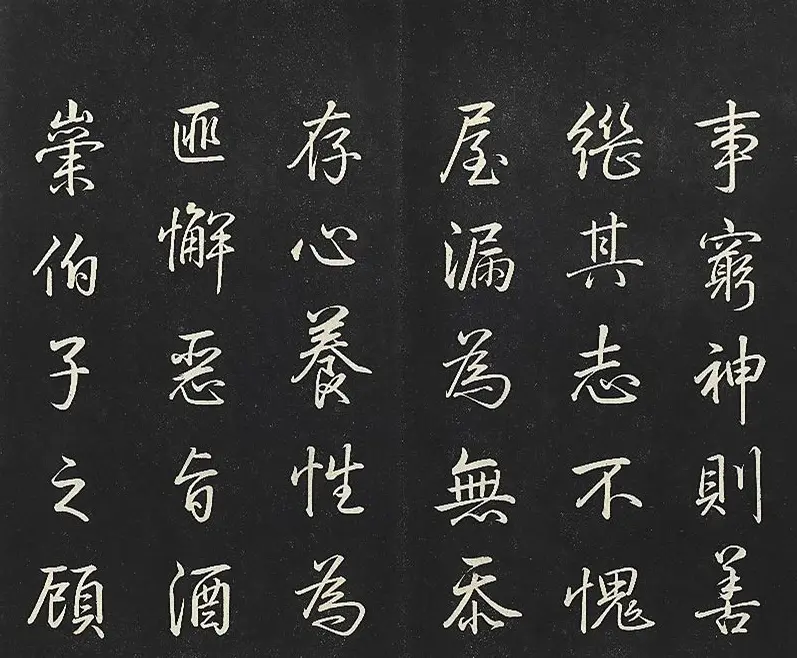 事窮神則善
継其志不愧
屋漏為無忝
存心養性為
匪懈惡旨酒
崇伯子之顧